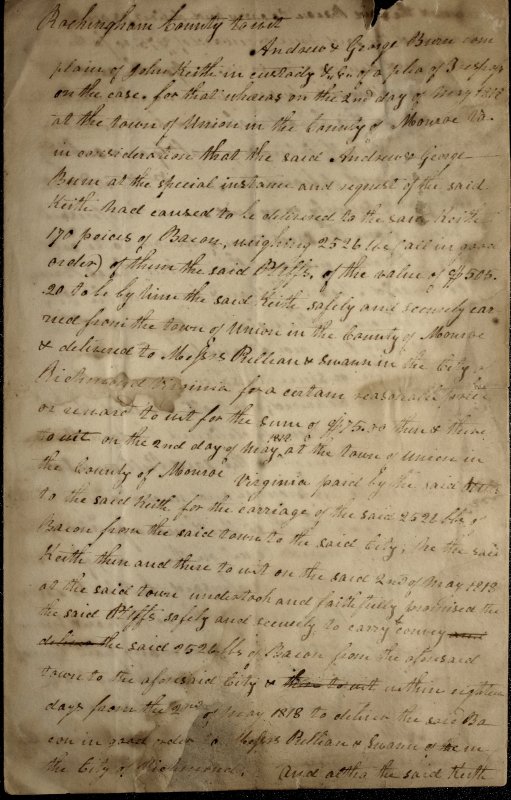 Rockingham County to wit
Andrew & George Burn com
plain of John Keith in custody &c &c of a plea of Trespass
on the case. for that whereas on the 2nd day of May 1818
at the town of Union in the County of Monroe Va.
in consideration that the said Andrew & George
Burn at the special instance and request of the said
Keith had caused to be delivered to the said Keith
170 peices of Bacon, weighing 2526 lbs (all in good
order) of them the said Pltffs. of the value of $505.
20 to be by him the said Keith safely and securely car
ried from the town of Union in the County of Monroe
& delivered to Messrs Rellian & Swann in the City of
Richmond Virginia for a certain reasonable price
or reward to wit for the sum of $75.00 then & there
to wit on the 2nd day of May 1818 at the town of Union in
the County of Monroe Virginia paid by the said
to the said Keith for the carriage of the said 2526 lbs of
Bacon from the said town to the said City, he the said
Keith then and there to wit on the said 2nd of May 1818
at the said town undertook and faithfully promised the
the said Pltffs safely and securely to carry & convey and
deliver the said 2526 lbs of Bacon from the aforesaid
town to the aforesaid City & then to wit within eighteen
days from the 2nd of May 1818 to deliver the said Ba
con in good order to Messrs Rellian & Swann in
the City of Richmond. And altho the said Keith